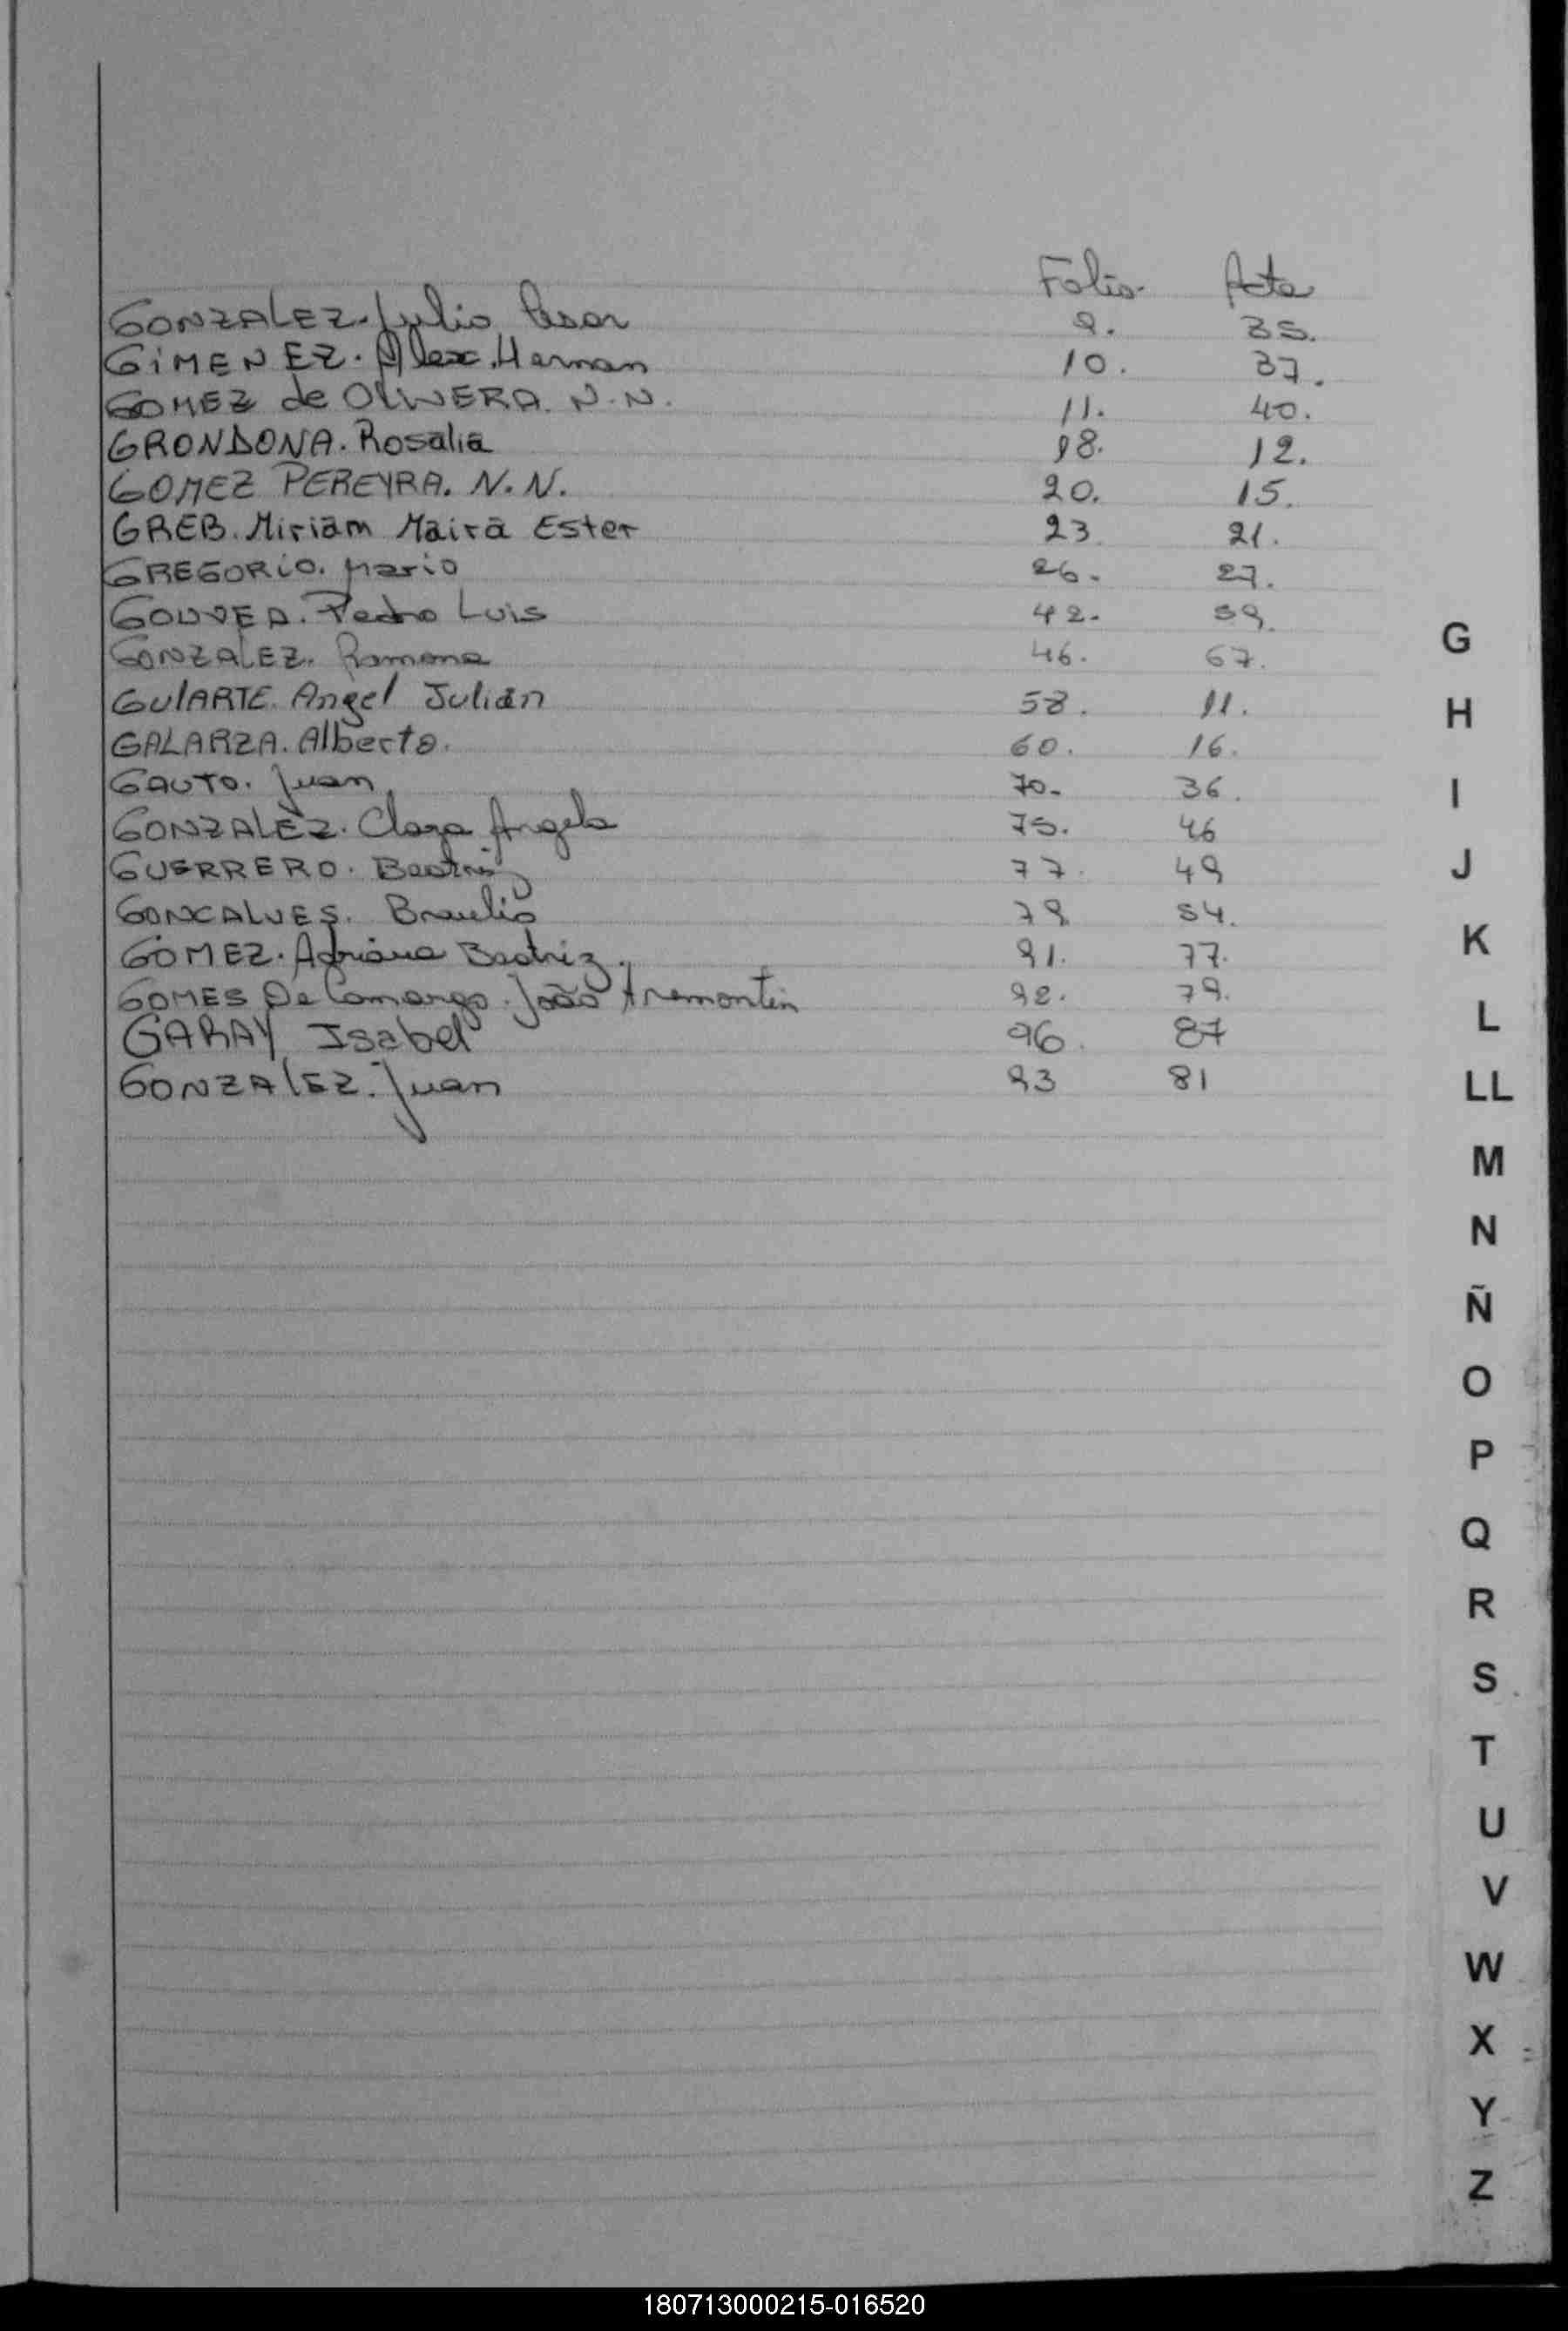 Folio. Acta
GONZALEZ. Julio Cesar 9. 35.
GiMENEZ. Alex. Hernan 10. 37.
GOMEZ de OLIVERA. N.N. 11. 40.
GRONDONA. Rosalia 18. 12.
GOMEZ PEREYRA. N.N. 20. 15.
GREB. Miriam Maira Ester 23 21.
GREGORiO. Mario 26. 27.
GOUVEA. Pedro Luis 42. 59.
GONZALEZ. Ramona 46. 67.
GUIARTE. Angel Julian 58. 11.
GALARZA. Alberto. 60. 16.
GAUTO. Juan 70. 36.
GONZALEZ. Clara Angela 75. 46
GUERRERO. Beatriz 77. 49
GONCALVES. Braulio 79 54.
GOMEZ. Adriana Beatriz. 91. 77.
GOMES De Camargo. João Tremontin 92. 79.
GARAY Isabel 96. 87
GONZALEZ. Juan 93 81
G
H
I
J
K
L
LL
M
N
Ñ
O
P
Q
R
S
T
U
V
W
X
Y
Z
180713000215-016520